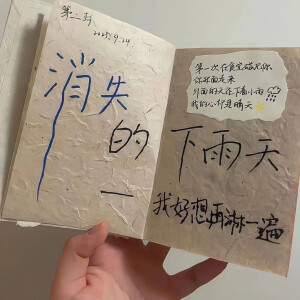 第二封
2025.9.24.
消失
的
第一次在食堂碰见你
你对面走来
外面的天在下着小雨
我的心却是晴天
下雨天
我好想再淋一遍